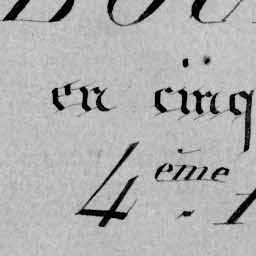 en cinq
4ème